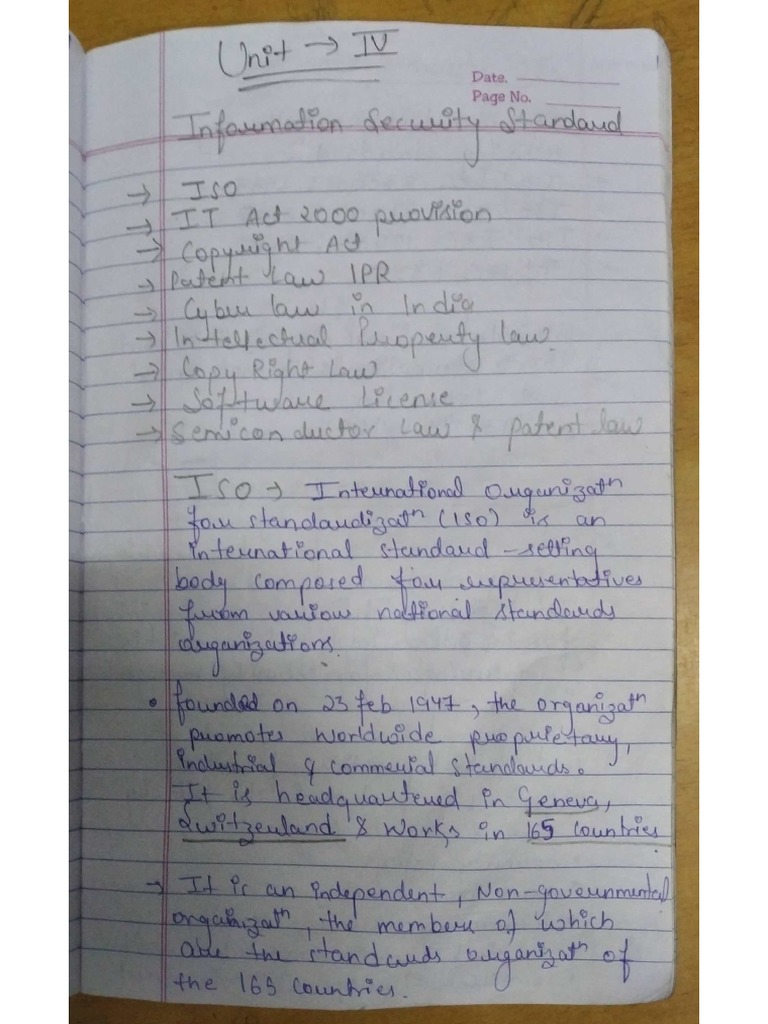 Unit → IV
Date.
Page No.
Information Security Standard
→ ISO
→ IT Act 2000 provision
→ Copyright Act
→ Patent Law IPR
→ Cyber law in India
→ Intellectual Property law.
→ Copy Right Law
→ Software License
→ Semiconductor Law & patent law
ISO → International Organizatn
for standardizatn (ISO) is an
international standard-setting
body composed for representatives
from various national standards
organizations.
• founded on 23 feb 1947, the organizatn
promotes worldwide proprietary,
industrial & commerial standards.
It is headquartered in Geneva,
Switzerland & works in 165 countries
→ It is an independent, Non-governmental
organizatn, the members of which
are the standards organizatn of
the 165 countries.